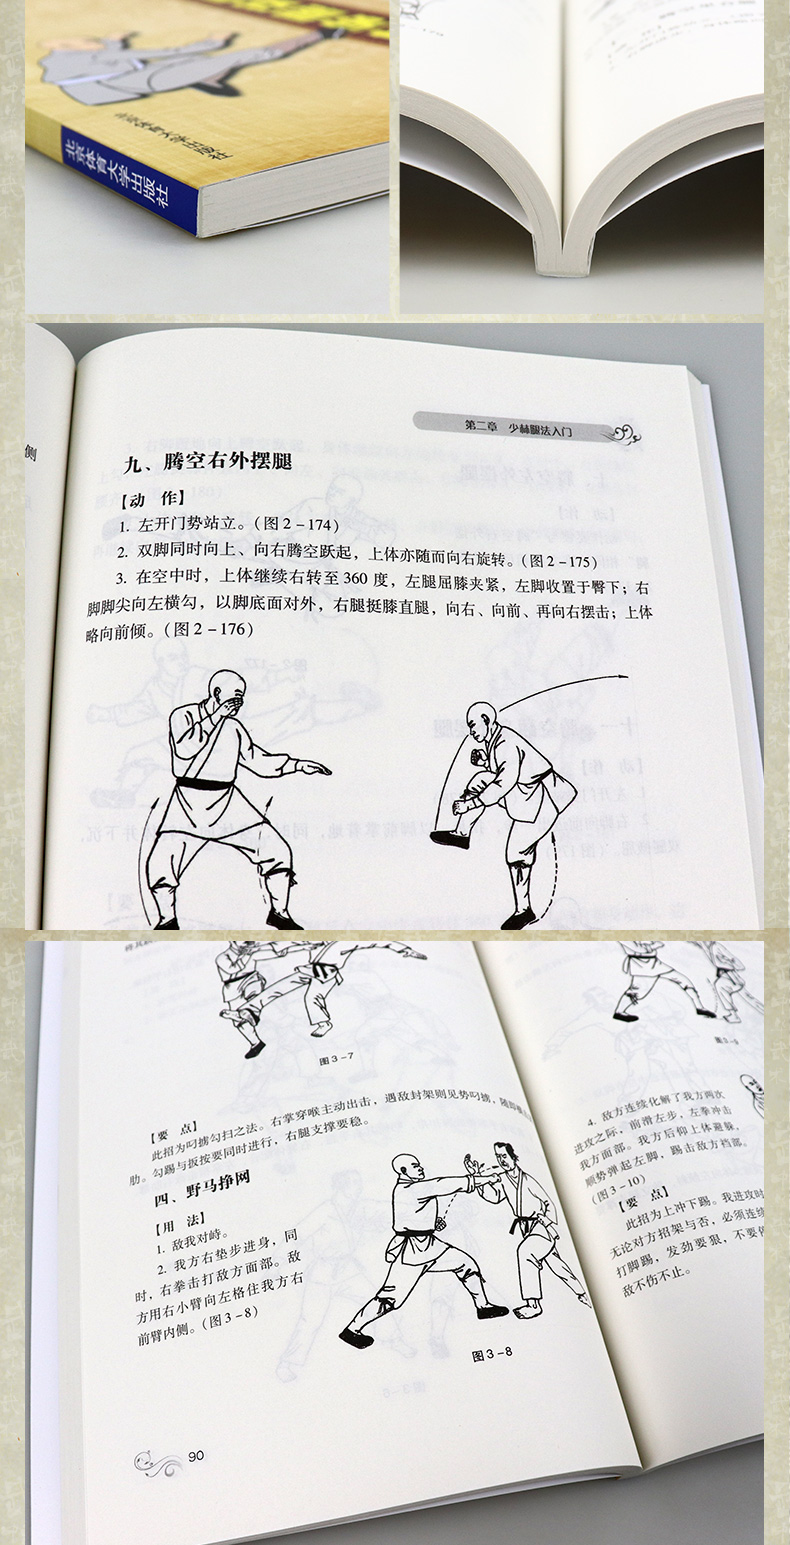 北京体育大学出版社
北京体育大学出版社
侧
第二章 少林腿法入门
九、腾空右外摆腿
【动 作】
1. 左开门势站立。(图2-174)
2. 双脚同时向上、向右腾空跃起，上体亦随而向右旋转。(图2-175)
3. 在空中时，上体继续右转至360度，左腿屈膝夹紧，左脚收置于臀下；右
脚脚尖向左横勾，以脚底面对外，右腿挺膝直腿，向右、向前、再向右摆击；上体
略向前倾。(图2-176)
图3-7
【要 点】
此招为叼掳勾扫之法。右掌穿喉主动出击，遇敌封架则见势叼掳，随即
肋。勾踢与扳按要同时进行，右腿支撑要稳。
四、野马挣网
【用 法】
1. 敌我对峙。
2. 我方右垫步进身，同
时，右拳击打敌方面部。敌
方用右小臂向左格住我方右
前臂内侧。(图3-8)
图3-8
90
图3-9
4. 敌方连续化解了我方两次
进攻之际，前滑左步，左拳冲击
我方面部。我方后仰上体避躲，
顺势弹起左脚，踢击敌方裆部。
(图3-10)
【要 点】
此招为上冲下踢。我进攻时
无论对方招架与否，必须连续
打脚踢，发劲要狠，不要
敌不伤不止。